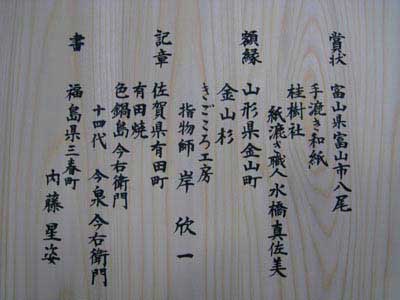 賞状 富山県富山市八尾
手漉き和紙
桂樹社
紙漉き職人 水橋真佐美
額縁 山形県金山町
金山杉
きごころ工房
指物師 岸欣一
記章 佐賀県有田町
有田焼
色鍋島 今右衛門
十四代 今泉今右衛門
書 福島県三春町
内藤星姿